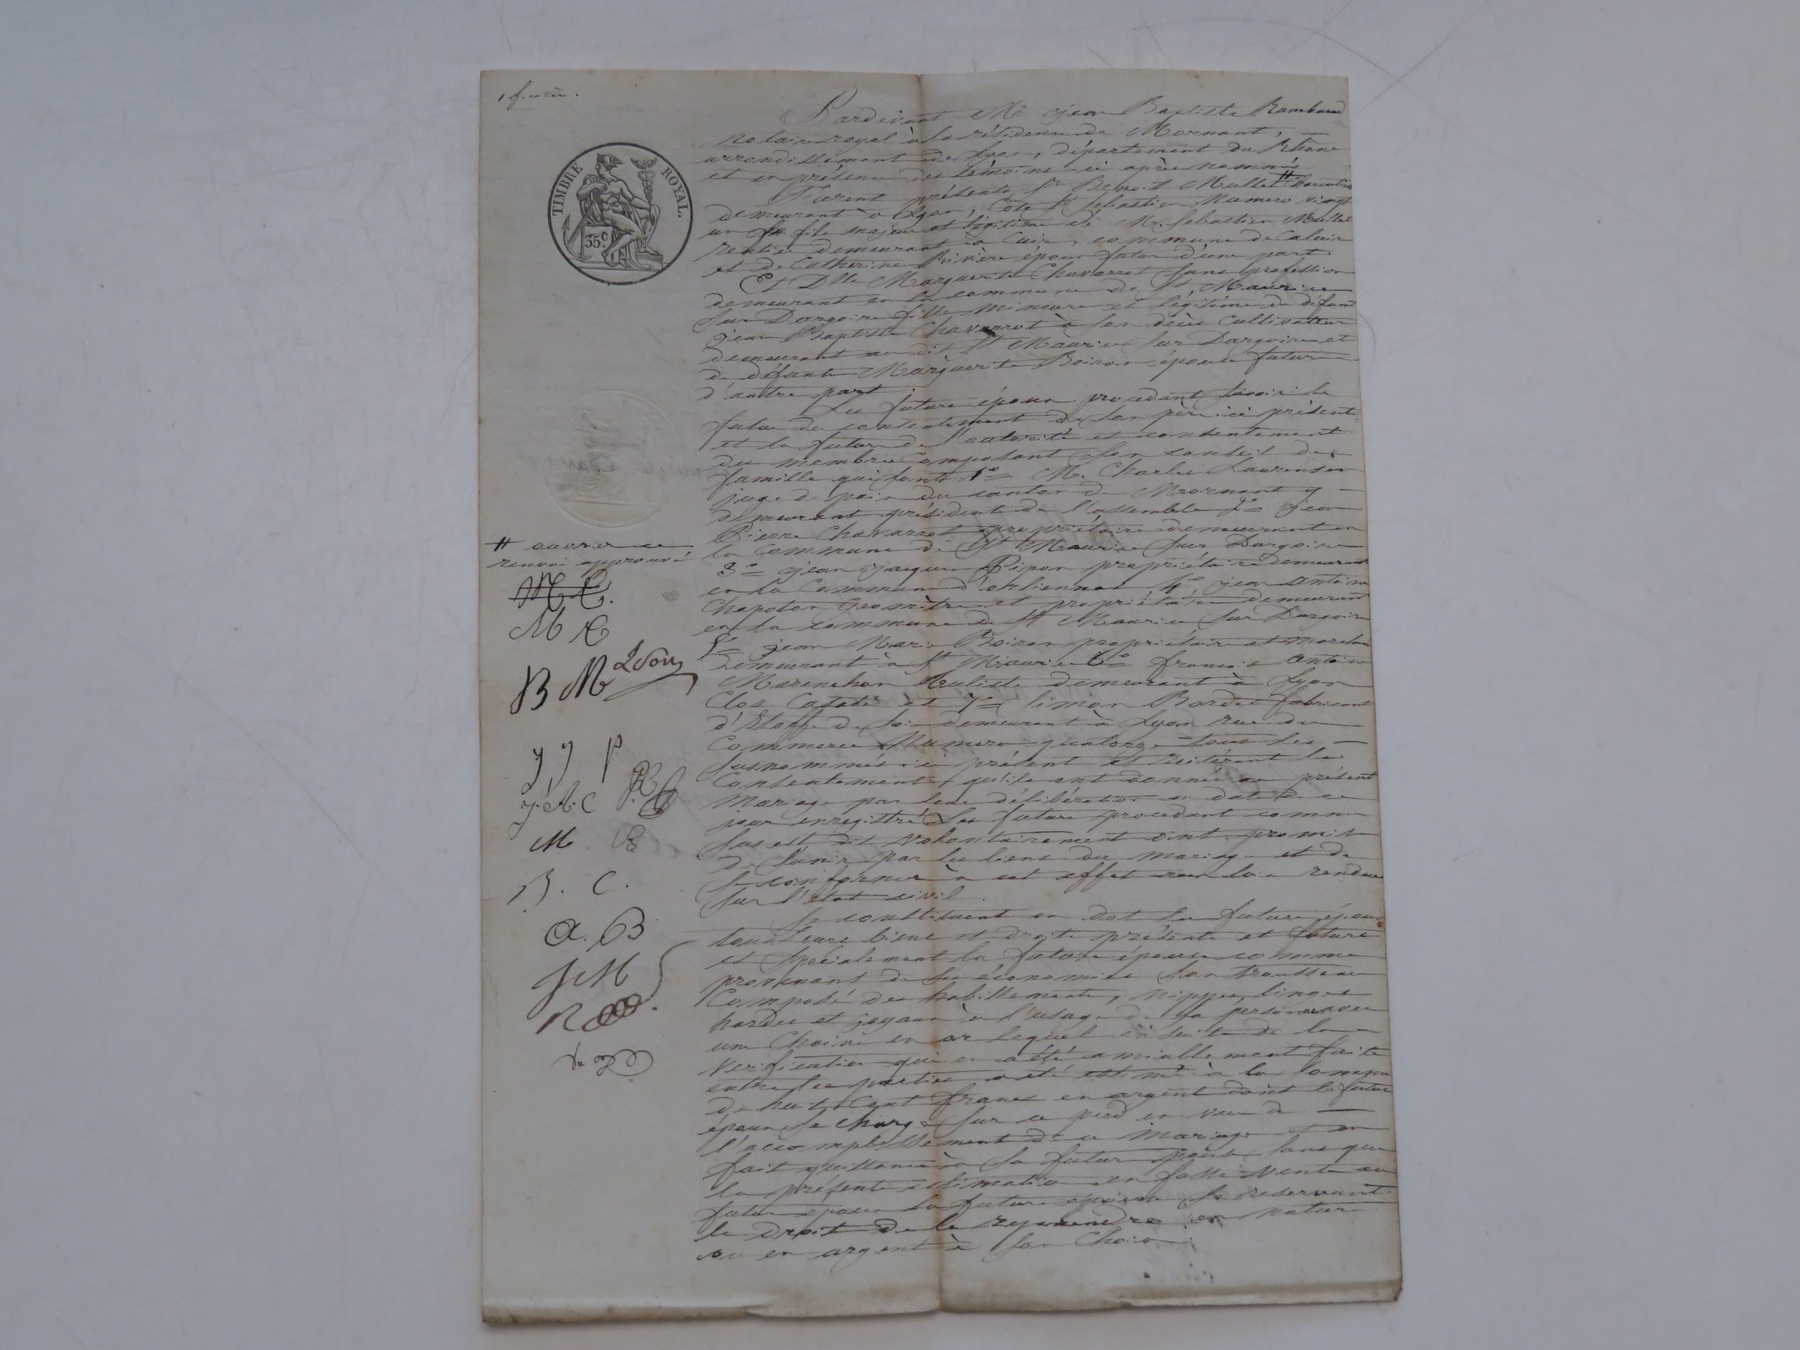 TIMBRE ROYAL.
35c.
Pardevant Me jean Baptiste Rambaud
notaire royal à la résidence de Mornant,
arrondissement de Lyon, département du Rhône
et en présence des témoins ci après nommés
Furent présents Sr Benoit Mallet #
demeurant à Lyon, Côte St Sebastien Numero vingt
un fils majeur et légitime de Mr Sebastien Mallet
rentier demeurant à Cuire, commune de Caluire
et de Catherine Rivière époux futur d'une part
Et Dlle Marguerite Chavarrot sans profession
demeurant en la commune de St Maurice
sur Dargoire fille mineure et légitime de défunt
jean Baptiste Chavarrot à son décès Cultivateur
demeurant au dit St Maurice sur Dargoire et
de défunte Marguerite Boiron épouse future
d'autre part
Les futurs époux procédant savoir le
futur du consentement de son père ici présent
et la future de l'autorité et consentement
des membres Composant son conseil de
famille qui sont 1o M. Charles Laurenson
juge de paix du canton de Mornant y
demeurant président de l'assemblée 2o jean
Pierre Chavarrot propriétaire demeurant en
la commune de St Maurice sur Dargoire
3o jean jacques Pipon propriétaire demeurant
en la Commune d'orliennas 4o jean Antoine
Chapolon Géomètre et propriétaire demeurant
en la commune de St Maurice sur Dargoire
5o jean Marie Boiron propriétaire et
demeurant à St Maurice 6o françois Antoine
demeurant à Lyon
Clos et 7o Simon Bordet fabricant
d'Etoffe de Soie demeurant à Lyon rue du
Commerce Numero quatorze tous les
susnommés ici présent et réitérant le
Consentement qu'ils ont donné au présent
Mariage par leur délibération en date de ce
jour enregistré Les futurs procédant comme
sus est dit volontairement ont promis
de s'unir par les liens du mariage et de
se conformer à cet effet aux lois rendues
sur l'état civil.
Se constituent en Dot les futurs époux
tous leurs biens et droits présents et futurs
et spécialement la future épouse comme
provenant de ses économies son trousseau
Composé des habillements, nippes, linges
hardes et joyaux à l'usage de sa personne avec
une Chaine en or lequel ensuite de la
Vérification qui en a été amiablement faite
entre les parties a été estimé à la Somme
de huit Cent francs en argent dont le futur
époux se charge sur ce pied en vue de
l'accomplissement de ce mariage
fait quittance à sa future épouse sans que
la présente estimation en fasse Vente au
futur époux la future épouse se reservant
le droit de le reprendre en nature
ou en argent à son Choix
# ouvrier ce
renvoi approuvé
M C.
M C
B M
j j p
j. A. C
M B
B. C.
a. B
J M